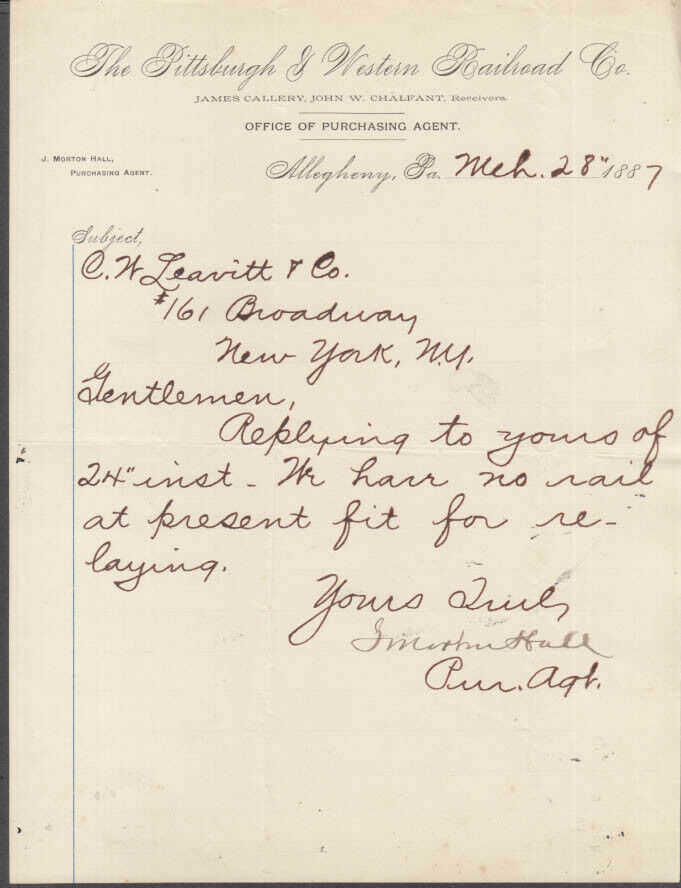 The Pittsburgh & Western Railroad Co.
JAMES CALLERY, JOHN W. CHALFANT, Receivers.
OFFICE OF PURCHASING AGENT.
J. MORTON HALL,
PURCHASING AGENT.
Allegheny, Pa. Mch. 28" 1887
Subject,
C. W. Leavitt & Co.
#161 Broadway
New York, N.Y.
Gentlemen,
Replying to yours of
24" inst - We have no rail
at present fit for re-
laying.
Yours Truly
J Morton Hall
Pur. Agt.